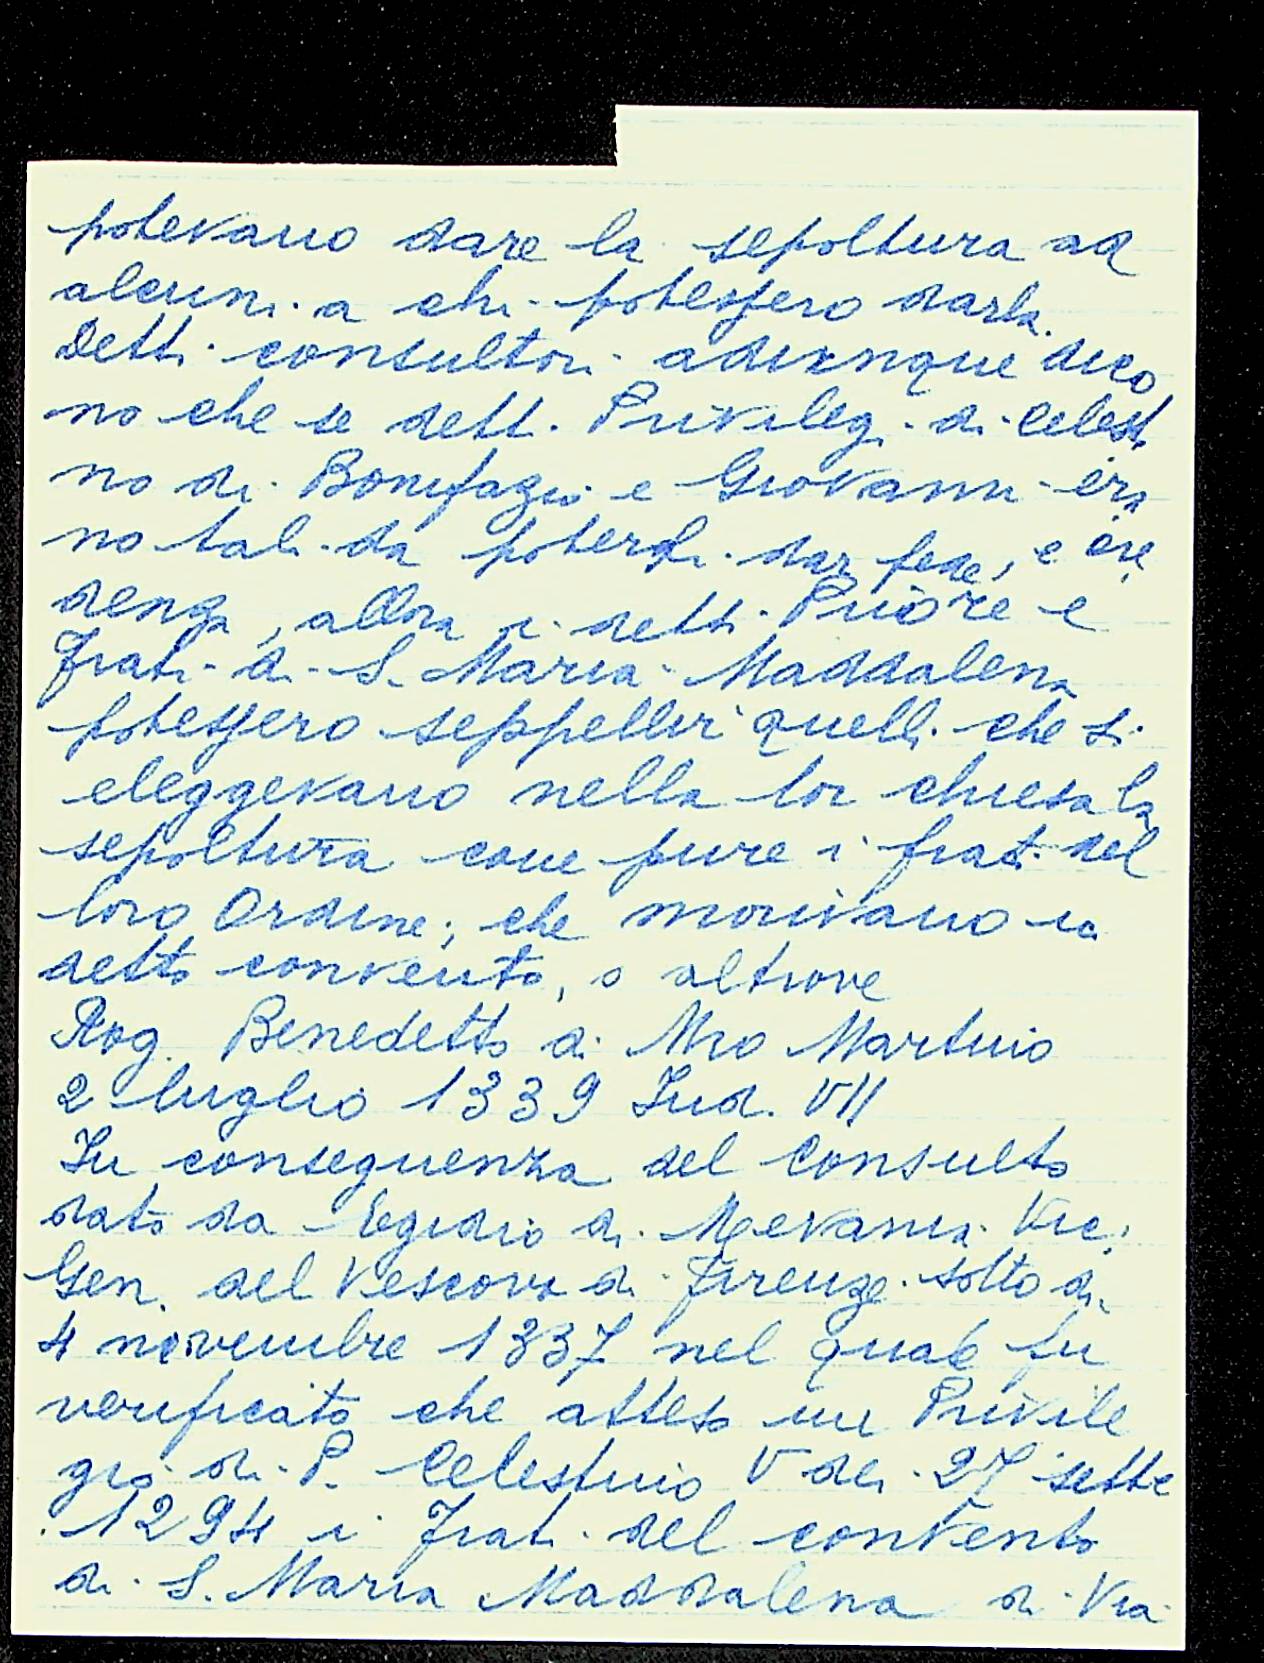 potevano dare la sepoltura ad
alcuni a chi potessero darla.
Detti consultori adunque dico
no che se detti Privilegi di Celesti
no di Bonifazio e Giovanni era
no tali da potersi dar fede, e cre
denza, allora i detti Priore e
Frati di S. Maria Maddalena
potessero seppellir quelli che si
eleggevano nella lor chiesa la
sepoltura come pure i frati del
loro Ordine; che morivano in
detto convento, o altrove
Rog. Benedetto di Mro Martino
2 luglio 1339 Ind. VII
In conseguenza del Consulto
dato da Egidio di Mevania Vic.
Gen. del Vescovo di Firenze sotto di
4 novembre 1337 nel quale fu
verificato che atteso un Privile
gio di P. Celestino V de 27 sette
1294 i Frati del convento
di S. Maria Maddalena di Via